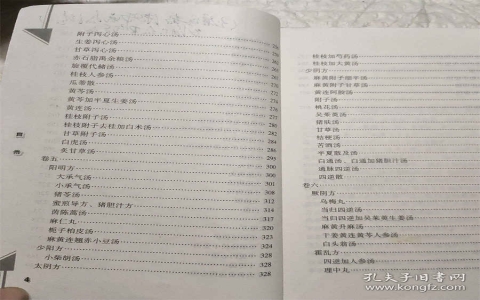 附子泻心汤
生姜泻心汤
甘草泻心汤
赤石脂禹余粮汤
旋覆代赭汤
桂枝人参汤
瓜蒂散
黄芩汤
黄芩加半夏生姜汤
黄连汤
桂枝附子汤
桂枝附子去桂加白术汤
甘草附子汤
白虎汤
炙甘草汤 300
卷五
阳明方 300
大承气汤 301
小承气汤 307
猪苓汤 312
蜜煎导方、猪胆汁方 314
茵陈蒿汤 316
麻仁丸 317
栀子柏皮汤 323
麻黄连翘赤小豆汤 324
少阳方 328
小柴胡汤 328
太阴方 328
桂枝加芍药汤
桂枝加大黄汤
少阴方
麻黄附子细辛汤
麻黄附子甘草汤
黄连阿胶汤
附子汤
桃花汤
吴茱萸汤
猪肤汤
甘草汤
桔梗汤
苦酒汤
半夏散及汤
白通汤、白通加猪胆汁汤
通脉四逆汤
四逆散
卷六
厥阴方
乌梅丸
当归四逆汤
当归四逆加吴茱萸生姜汤
麻黄升麻汤
干姜黄连黄芩人参汤
白头翁汤
霍乱方
四逆加人参汤
理中丸
孔夫子旧书网